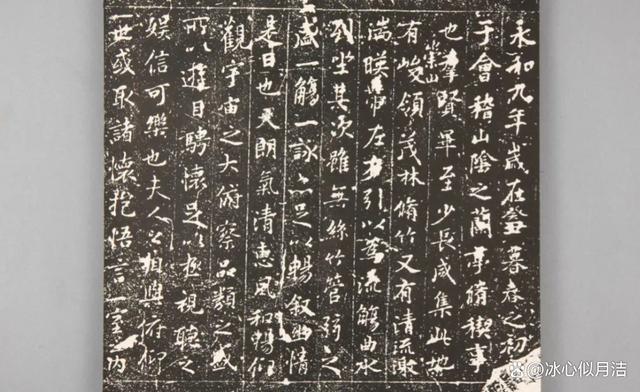 永和九年歲在癸丑暮春之初
于會稽山陰之蘭亭脩稧事
也羣賢畢至少長咸集此地
有崇山峻領茂林脩竹又有清流激
湍暎帶左右引以爲流觴曲水
列坐其次雖無絲竹管弦之
盛一觴一詠亦足以暢敘幽情
是日也天朗氣清惠風和暢仰
觀宇宙之大俯察品類之盛
所以遊目騁懷足以極視聽之
娛信可樂也夫人之相與俯仰
一世或取諸懷抱悟言一室之內
@冰心似月洁